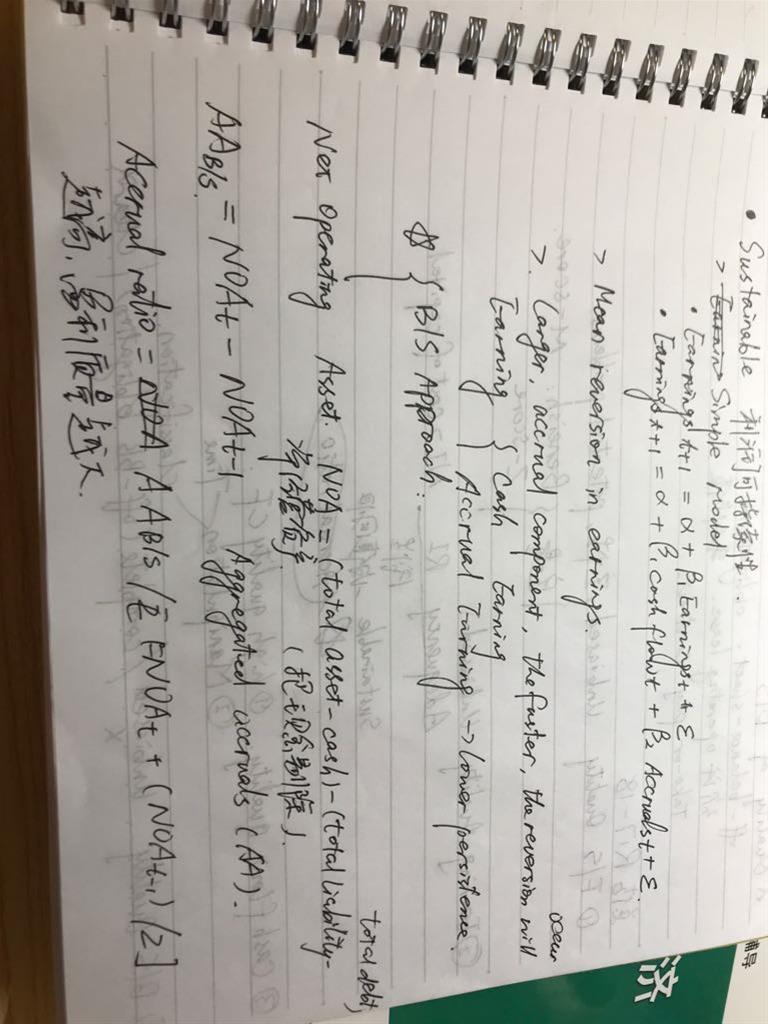 • Sustainable 利润可持续性.
> Simple Model
• Earnings t+1 = α + β₁ Earnings t + ε
• Earnings t+1 = α + β₁ cash flow t + β₂ Accruals t + ε.
> Mean reversion in earnings.
> Larger, accrual component, the faster, the reversion will occur
Earning { Cash Earning
Accrual Earning → lower persistence.
{ B/S Approach:
Net operating Asset. NOA = (total asset - cash) - (total liability - total debt)
净经营资产 (把现金剔除)
AA B/S. = NOAt - NOAt-1 Aggregated accruals (AA).
Accrual ratio = AA B/S / [NOAt + (NOAt-1) / 2]
越高, 盈利质量越大.
辅导
济